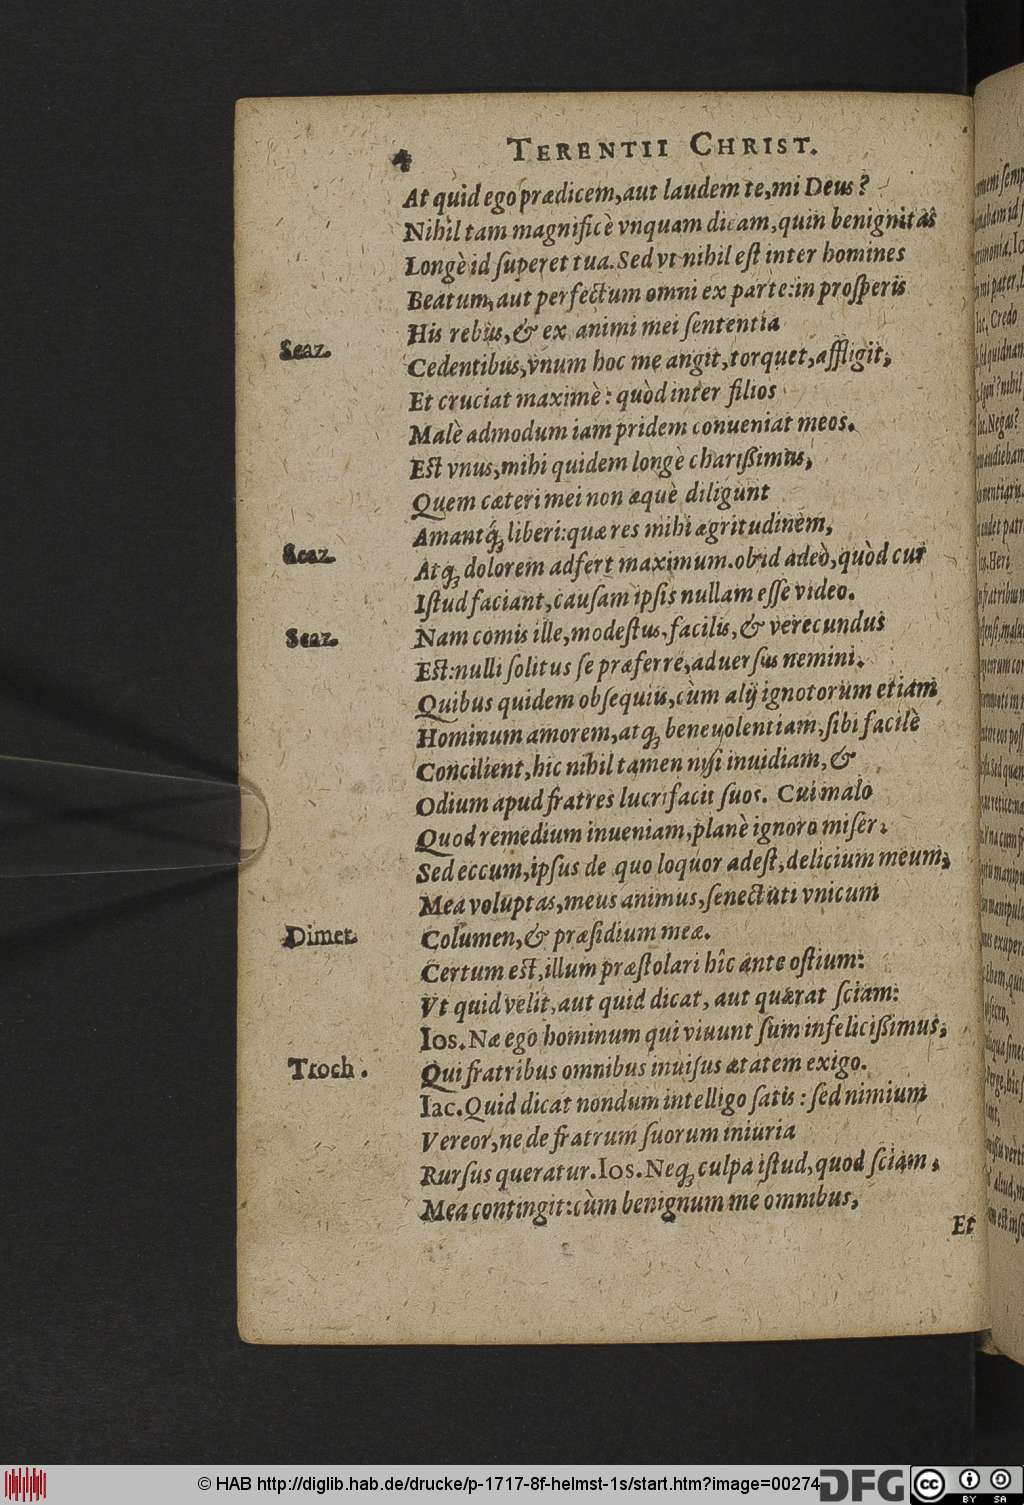 4 TERENTII CHRIST.
At quid ego prædicem, aut laudem te, mi Deus?
Nihil tam magnificè vnquam dicam, quin benignitas
Longè id ſuperet tua. Sed vt nihil eſt inter homines
Beatum, aut perfectum omni ex parte: in proſperis
His rebus, & ex animi mei ſententia
Scaz. Cedentibus, vnum hoc me angit, torquet, affligit,
Et cruciat maximè: quòd inter filios
Malè admodum iam pridem conueniat meos.
Eſt vnus, mihi quidem longè chariſſimus,
Quem cæteri mei non æquè diligunt
Amantq́; liberi: quæ res mihi ægritudinem,
Scaz. Atq; dolorem adfert maximum. ob id adeò, quòd cur
Iſtud faciant, cauſam ipſis nullam eſſe video.
Scaz. Nam comis ille, modeſtus, facilis, & verecundus
Eſt: nulli ſolitus ſe præferre, aduerſus nemini.
Quibus quidem obſequiis, cùm alij ignotorum etiam
Hominum amorem, atq; beneuolentiam, ſibi facilè
Concilient, hic nihil tamen niſi inuidiam, &
Odium apud fratres lucrifacit ſuos. Cui malo
Quod remedium inueniam, planè ignoro miſer.
Sed eccum, ipſus de quo loquor adeſt, delicium meum,
Mea voluptas, meus animus, ſenectuti vnicum
Dimet. Columen, & præſidium meæ.
Certum eſt, illum præſtolari hîc ante oſtium:
Vt quid velit, aut quid dicat, aut quærat ſciam:
Ios. Næ ego hominum qui viuunt ſum infeliciſſimus,
Troch. Qui fratribus omnibus inuiſus ætatem exigo.
Iac. Quid dicat nondum intelligo ſatis: ſed nimium
Vereor, ne de fratrum ſuorum iniuria
Rurſus queratur. Ios. Neq; culpa iſtud, quod ſciam,
Mea contingit: cùm benignum me omnibus,
Et
© HAB http://diglib.hab.de/drucke/p-1717-8f-helmst-1s/start.htm?image=00274
DFG
cc BY SA